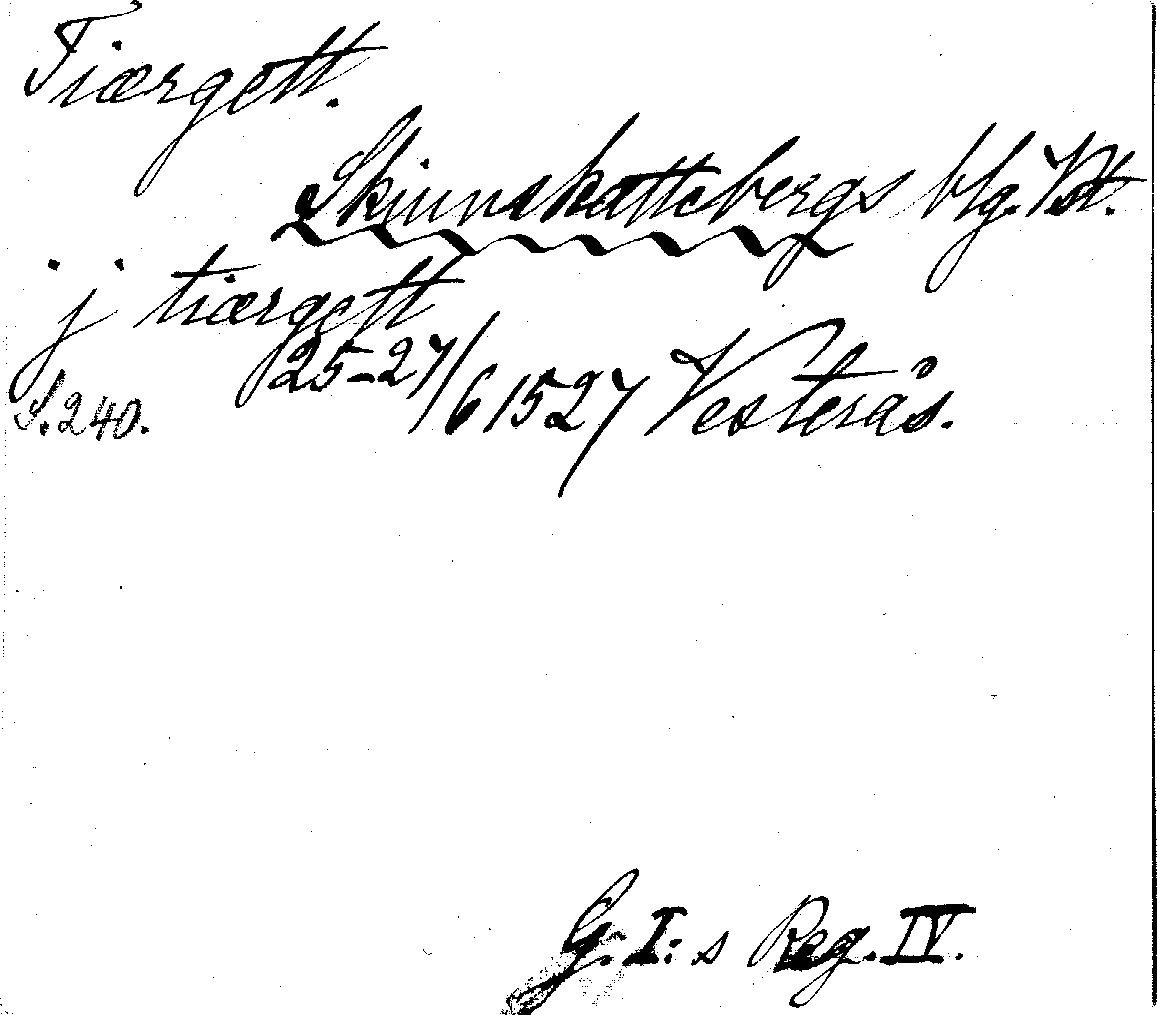 Tiærgett.
Skinnskattebergs blg. Vstm.
j tiærgett
25-27/6 1527 Vesterås.
S. 240.
G. I: s Reg. IV.